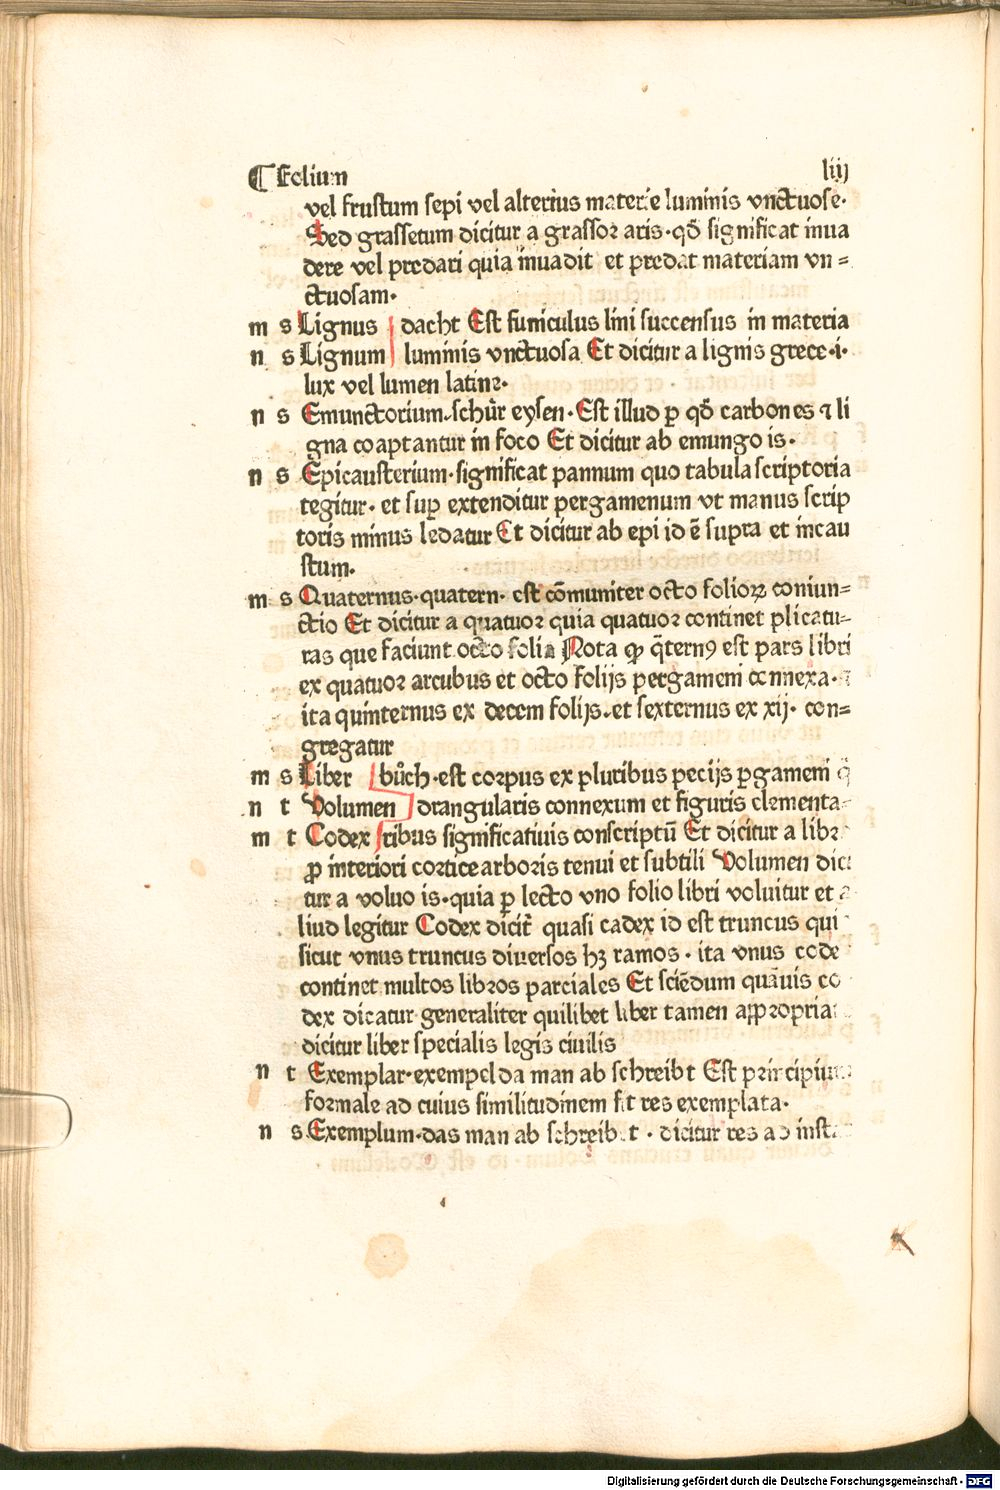 ¶ Folium liij
vel frustum sepi vel alterius materie luminis vnctuose.
Sed grassetum dicitur a grassor aris. qd̄ significat inua
dere vel predari quia inuadit et predat materiam vn=
ctuosam.
m s Lignus dacht Est funiculus lini succensus in materia
n s Lignum luminis vnctuosa Et dicitur a lignis grece .i.
lux vel lumen latine.
n s Emunctorium. schuͤr eysen. Est illud ꝑ qd̄ carbones ⁊ li
gna coaptantur in foco Et dicitur ab emungo is.
n s Epicausterium. significat pannum quo tabula scriptoria
tegitur. et suꝑ extenditur pergamenum vt manus scrip
toris minus ledatur Et dicitur ab epi id ē supra et incau
stum.
m s Quaternus. quatern. est cōmuniter octo folioꝝ coniun=
ctio Et dicitur a quatuor quia quatuor continet plicatu=
ras que faciunt octo folia Nota ꝙ q̄ternꝰ est pars libri
ex quatuor arcubus et octo folijs pergameni connexa.
ita quinternus ex decem folijs. et sexternus ex xij. con=
gregatur
m s Liber buͦch. est corpus ex pluribus pecijs ꝑgameni q̄
n t Volumen drangularis connexum et figuris elementa=
m t Codex ribus significatiuis conscriptū Et dicitur a libro
ꝓ interiori cortice arboris tenui et subtili Volumen dici
tur a voluo is. quia ꝑ lecto vno folio libri voluitur et a
liud legitur Codex dicit̄ quasi cadex id est truncus qui
sicut vnus truncus diuersos hꝫ ramos. ita vnus code
continet multos libros parciales Et sciēdum quāuis co
dex dicatur generaliter quilibet liber tamen aꝓpropria
dicitur liber specialis legis ciuilis
n t Exemplar. exempel da man ab schreibt Est principium
formale ad cuius similitudinem fit res exemplata.
n s Exemplum. das man ab schreibet. dicitur res ad inst
Digitalisierung gefördert durch die Deutsche Forschungsgemeinschaft - DFG